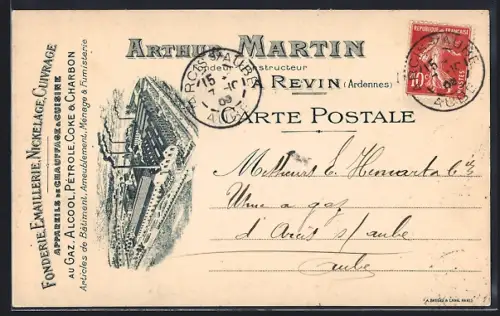 ARTHUR MARTIN
Fondeur-Constructeur
REVIN (Ardennes)
CARTE POSTALE
FONDERIE, EMAILLERIE, NICKELAGE, CUIVRAGE
APPAREILS DE CHAUFFAGE & CUISINE
AU GAZ, ALCOOL, PÉTROLE, COKE & CHARBON
Articles de Bâtiment, Ameublement, Ménage & Fumisterie
ARCIS-S-AUBE
15
AUBE
RÉPUBLIQUE FRANÇAISE
10c
ARCIS-S-AUBE
AUBE
Messieurs E.
Usine a gaz
d'Arcis s/aube
Aube